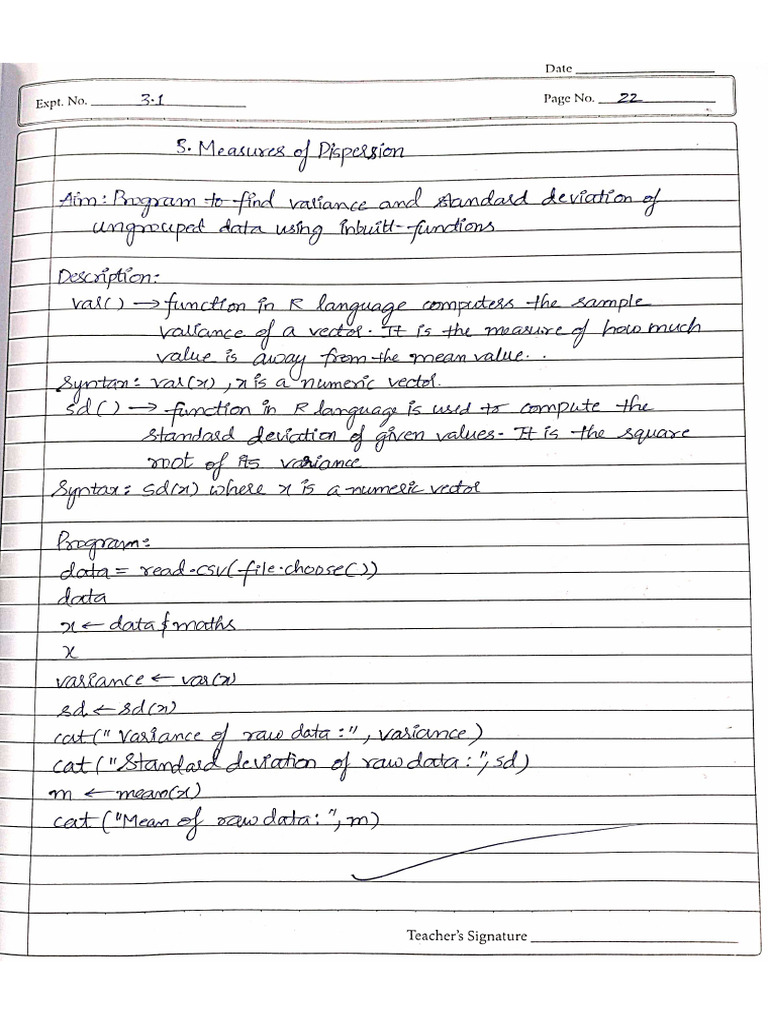 Date
Expt. No. 3.1
Page No. 22
5. Measures of Dispersion
Aim: Program to find variance and standard deviation of
ungrouped data using inbuilt-functions
Description:
var() → function in R language computers the sample
variance of a vector. It is the measure of how much
value is away from the mean value..
Syntax: var(x), x is a numeric vector.
sd() → function in R language is used to compute the
standard deviation of given values. It is the square
root of its variance
Syntax: sd(x) where x is a numeric vector
Program:
data = read.csv(file.choose())
data
x ← data$maths
x
variance ← var(x)
sd ← sd(x)
cat("Variance of raw data:", variance)
cat("Standard deviation of raw data:", sd)
m ← mean(x)
cat("Mean of raw data:", m)
Teacher's Signature